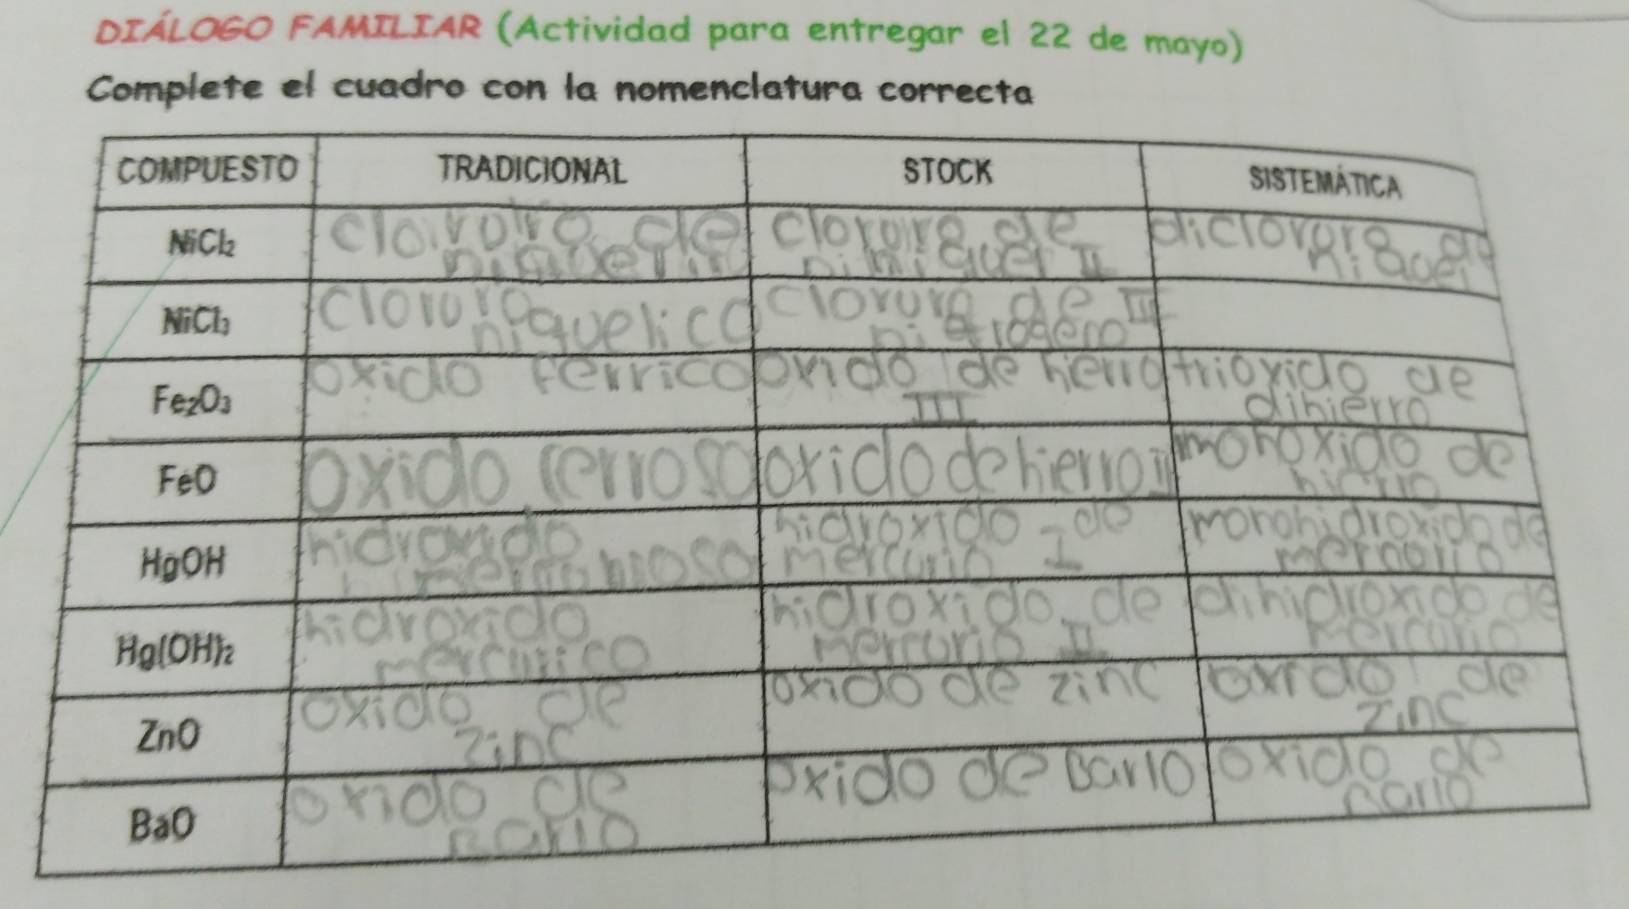 DIÁLOGO FAMILIAR (Actividad para entregar el 22 de mayo)
Complete el cuadro con la nomenclatura correcta
COMPUESTO TRADICIONAL STOCK SISTEMÁTICA
NiCl2 de cloroire de
II
NiCl3 clororo clorore de III
niquelico
Fe2O3 oxido ferrico oxido de hierro trioxido de
III dihierro
FeO oxido ferroso oxido de hierro II monoxido de
hierro
HgOH hidroxido hidroxido - de monohidroxido de
mercurio I mercorio
Hg(OH)2 hidroxido hidroxido de dihidroxido de
mercurico mercorio II mercurio
ZnO oxido de oxido de zinc oxido de
zinc zinc
BaO oxido de oxido de bario oxido de
bario bario